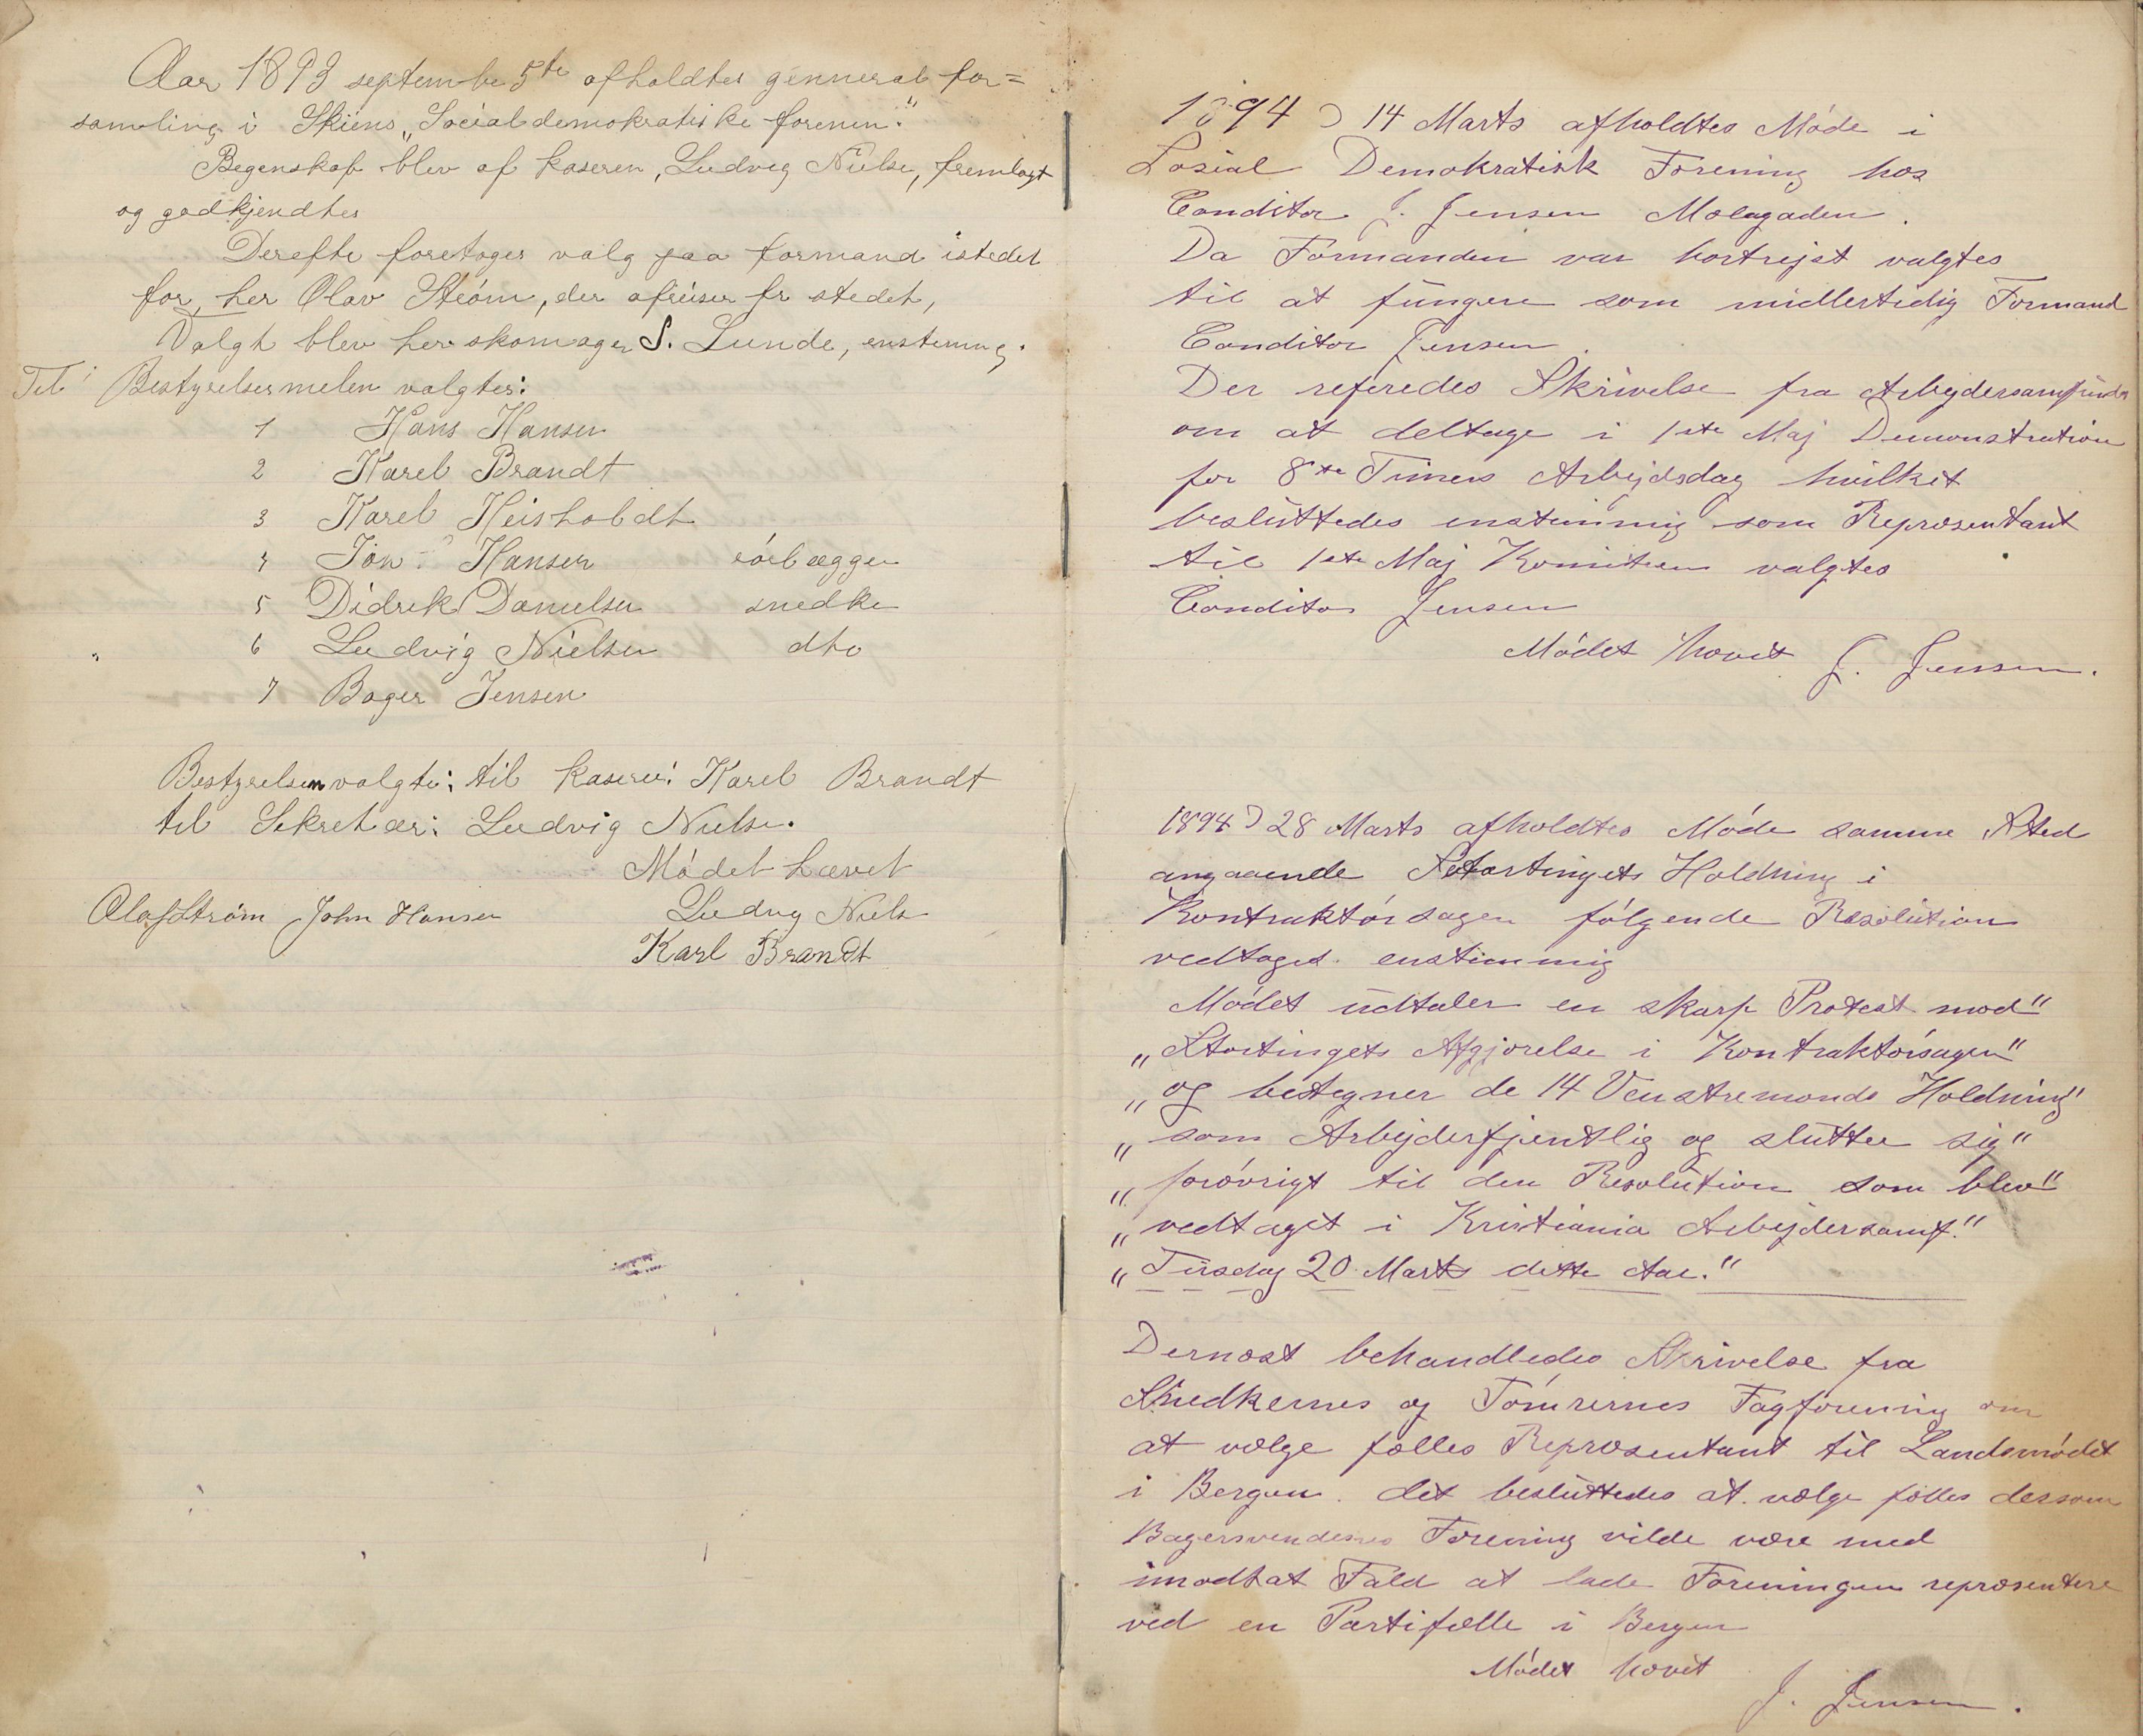 Aar 1893 septembe 5te afholdtes genneral for=
samling i Skiens „Socialdemokratiske forenin."
Regenskab blev af kaseren, Ludvig Nielse, fremlagt
og godkjendtes
Derefte foretoges valg paa formand istedet
for, her Olav Strøm, der afreiser fr stedet,
Valgt blev her skomager S. Lunde, enstemmig.
Til Bestyrelsesmelem valgtes:
1 Hans Hansen
2 Karel Brandt
3 Karel Heisholdt
4 Jon Hansen rørlægger
5 Didrek Danielsen snedke
6 Ludvig Nielsen dto
7 Bager Jensen
Bestyrelsen valgte: til kaserer: Karel Brandt
til Sekretær: Ludvig Nielse.
Mødet hævet
Olaf Strøm John Hansen Ludvig Niels
Karl Brandt
1894 D 14 Marts afholdtes Møde i
Sosial Demokratisk Forening hos
Conditor J. Jensen Mælagaden.
Da Formanden var bortrejst valgtes
til at fungere som midlertidig Formand
Conditor Jensen.
Der referedes Skrivelse fra Arbejdersamfundet
om at deltage i 1ste Maj Demonstration
for 8te Timers Arbejdsdag hvilket
besluttedes enstemmig som Repræsentant
til 1ste Maj Komiteen valgtes
Conditor Jensen
Mødet hævet J. Jensen.
1894 D 28 Marts afholdtes Møde samme Sted
angaaende Stortingets Holdning i
Kontraktørsagen følgende Resolution
vedtoges enstimmig
Mødet udtaler en skarp Protest mod"
„Stortingets Afgjørelse i Kontraktørsagen"
„og betegner de 14 Venstremænds Holdning"
„som Arbejderfjentlig og slutter sig"
„forøvrigt til den Resolution som blev"
„vedtaget i Kristiania Arbejdersamf."
„Tirsdag 20 Marts dette Aar."
Dernæst behandledes Skrivelse fra
Snedkernes og Tømrernes Fagforening om
at vælge fælles Repræsentant til Landsmødet
i Bergen. det besluttedes at vælge fælles dersom
Bagersvendenes Forening vilde være med
imodtat Fald at lade Foreningen repræsentere
ved en Partifælle i Bergen
Mødet hævet
J. Jensen.